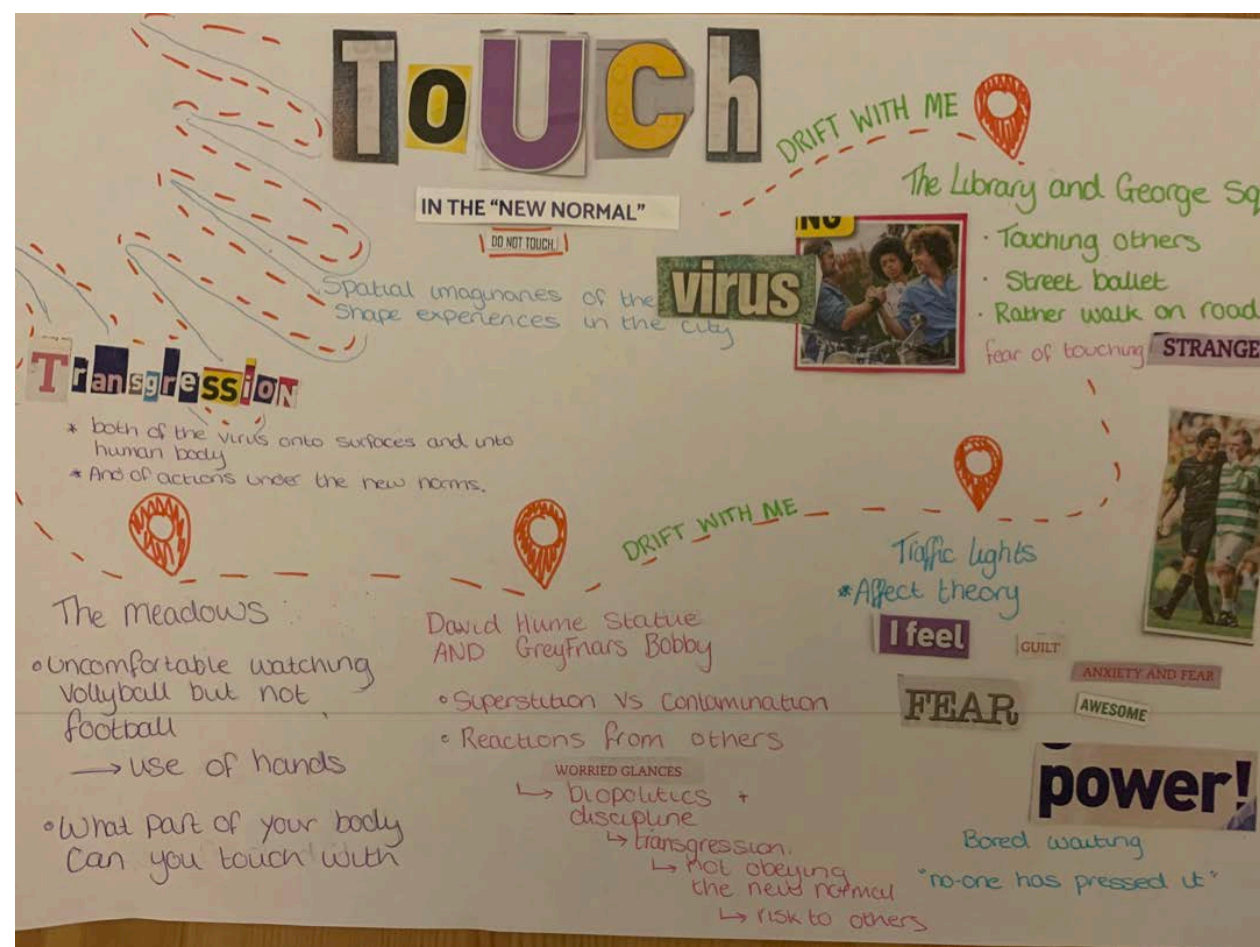 ToUCh
IN THE "NEW NORMAL"
DO NOT TOUCH
Spatial imaginaries of the virus
Shape experiences in the city
DRIFT WITH ME
The Library and George Sq
· Touching others
· Street ballet
· Rather walk on road
fear of touching STRANGE
NG
TransgressioN
* both of the virus onto surfaces and into
human body
* And of actions under the new norms.
The Meadows
Uncomfortable watching
Vollyball but not
football
→ use of hands
What part of your body
Can you touch with
DRIFT WITH ME
David Hume Statue
AND Greyfriars Bobby
Superstition Vs Contamination
Reactions from others
WORRIED GLANCES
↳ biopolitics +
discipline
↳ transgression.
↳ not obeying
the new normal
↳ risk to others
Traffic lights
*Affect theory
I feel
GUILT
ANXIETY AND FEAR
FEAR
AWESOME
power!
Bored waiting
"no-one has pressed it"